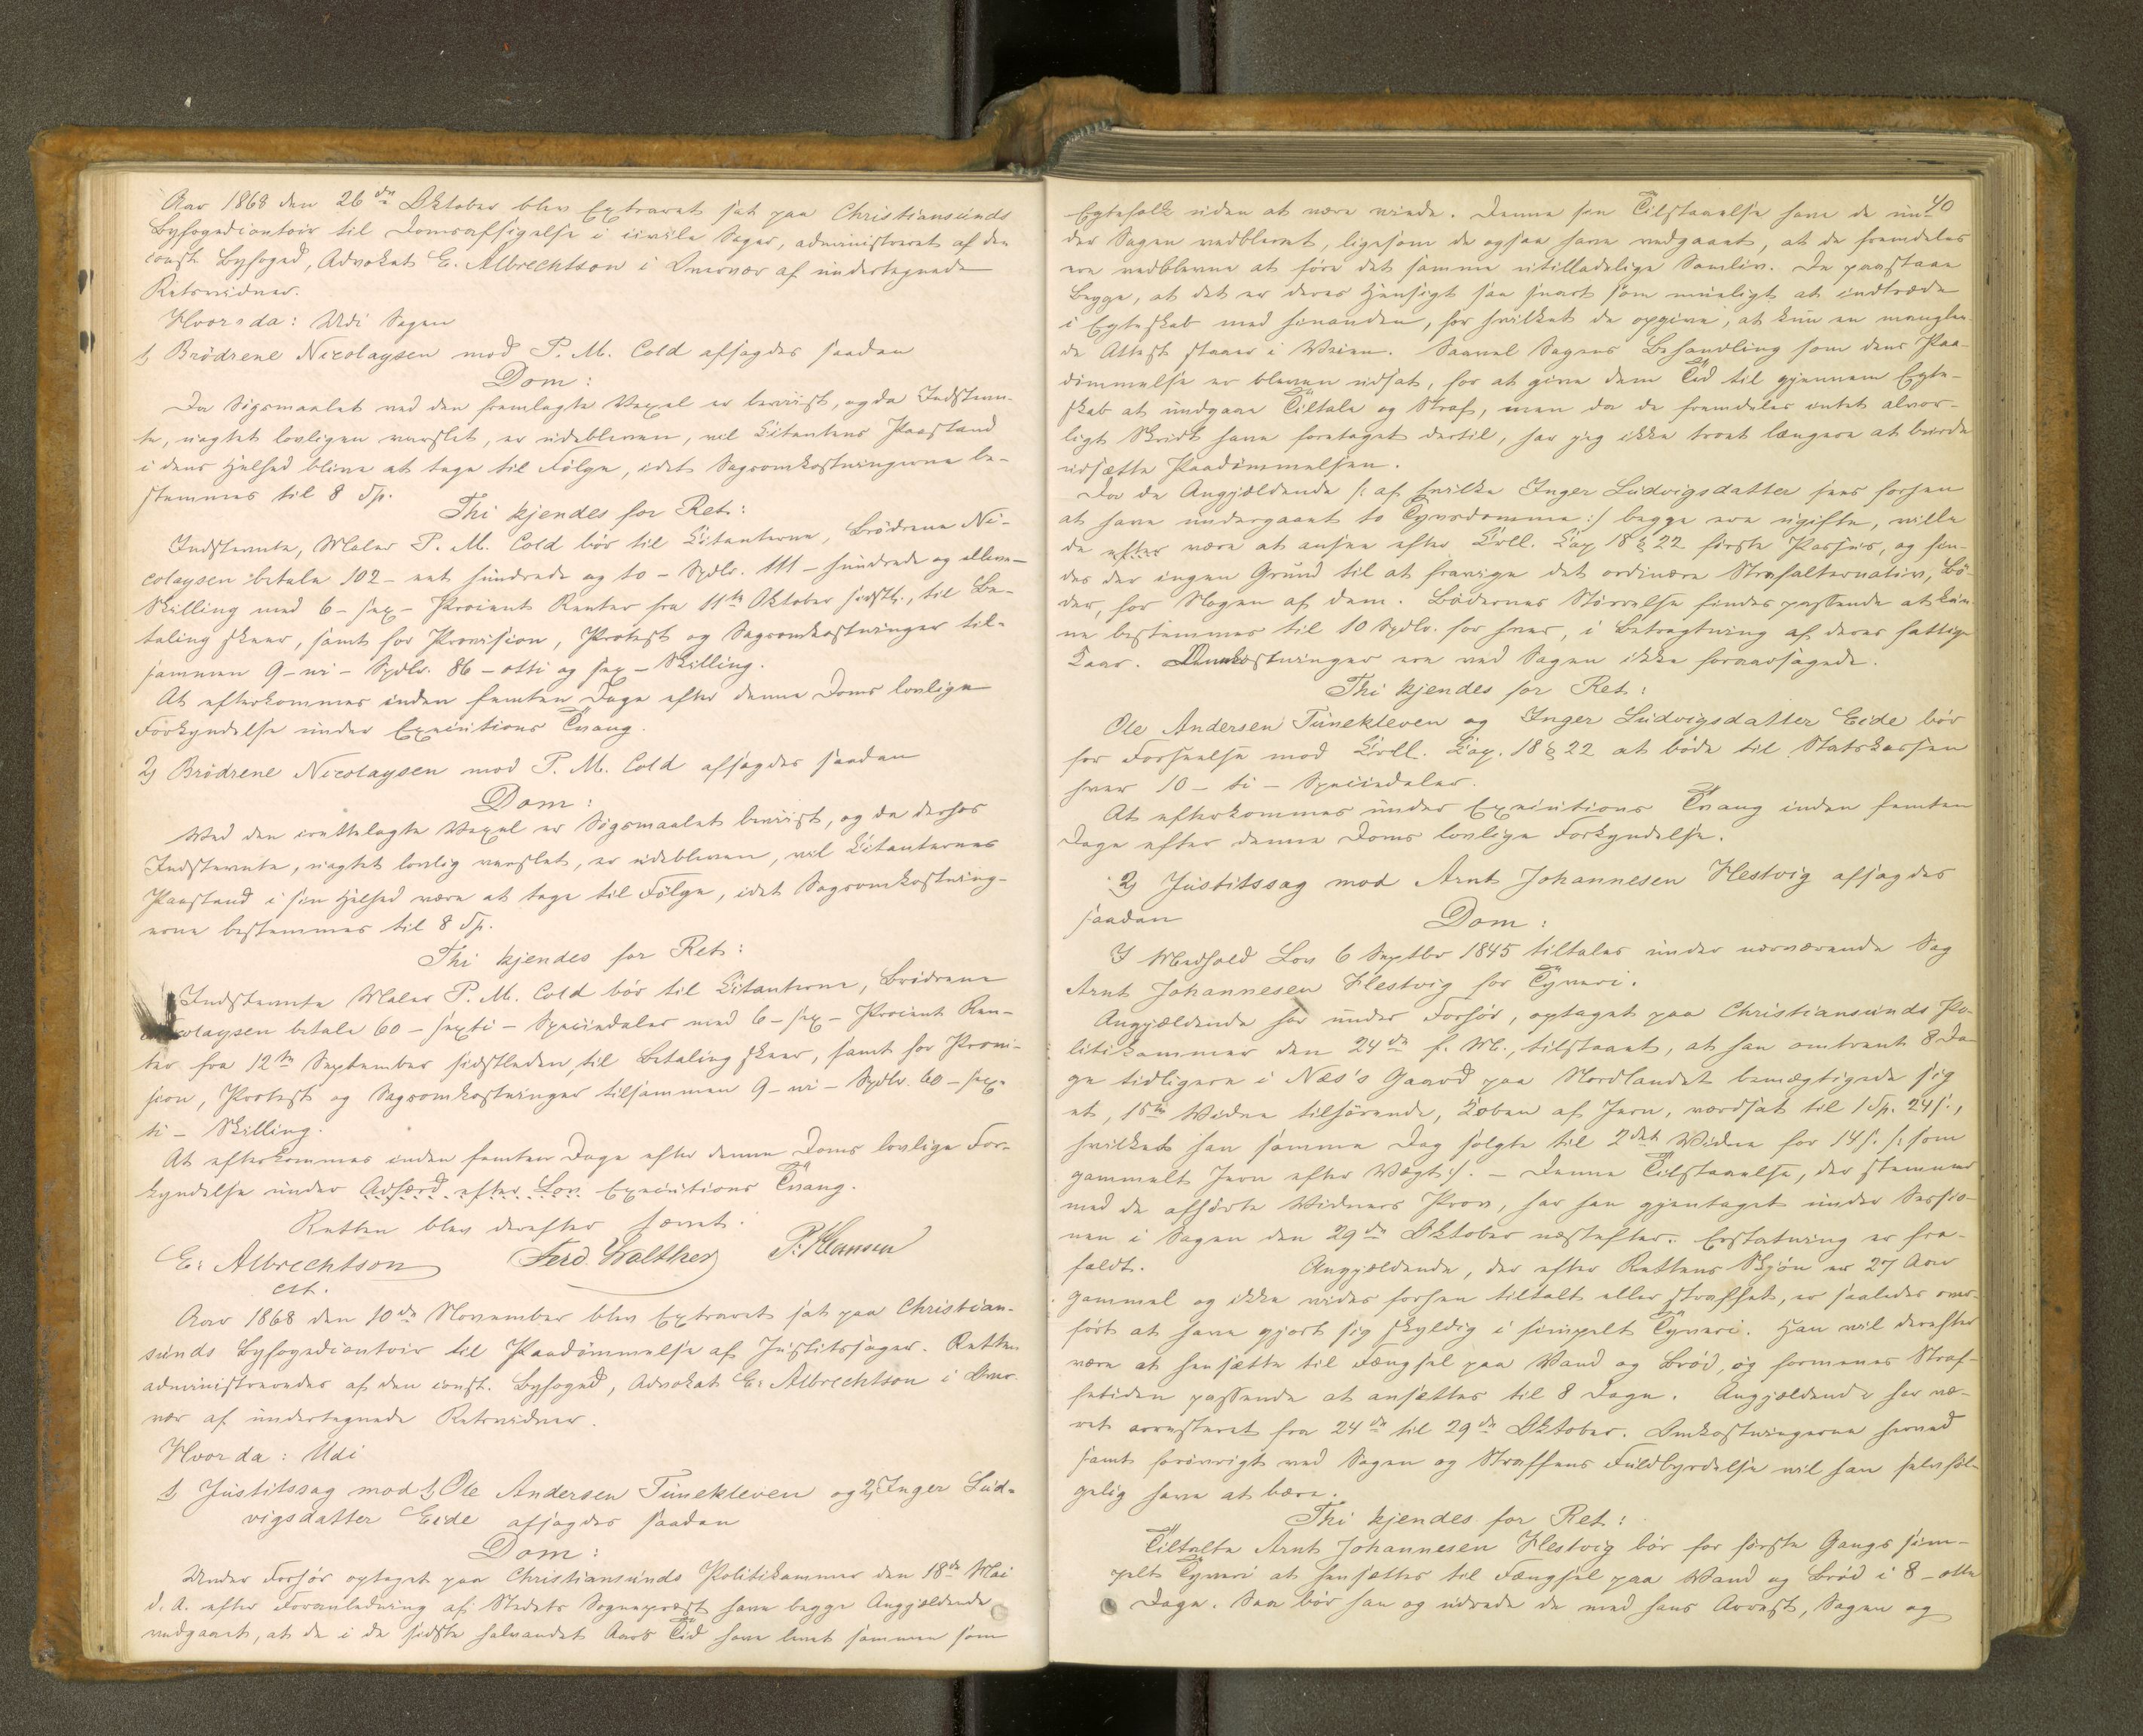 Aar 1868 den 26de Oktober blev Extraret sat paa Christiansunds
Byfogedcontoir til Domsafsigelse i civile Sager, administreret af den
const. Byfoged, Advokat E. Albrechtson i Overvær af undertegnede
Retsvidner.
Hvorda: Udi Sagen
1, Brödrene Nicolaysen mod P. M. Cold afsagdes saadan
Dom:
Da Sögsmaalet ved den fremlagte Vexel er beviist, og da Indstevn-
te, uagtet lovligen varslet, er udebleven, vil Citantens Paastand
i dens Helhed blive at tage til Fölge, idet Sagsomkostningerne be-
stemmes til 8 Sp.
Thi kjendes for Ret:
Indstevnte, Maler P. M. Cold bör til Citanterne, Brödrene Ni-
colaysen betale 102 - eet hundrede og to - Spdlr. 111 - hundrede og elleve -
Skilling med 6 - sex - Procent Renter fra 11te Oktober sidstl., til Be-
taling skeer, samt for Provision, Protest og Sagsomkostninger til-
sammen 9 - ni - Spdlr. 86 - otti og sex - Skilling.
At efterkommes inden femten Dage efter denne Doms lovlige
Forkyndelse under Executions Tvang.
2, Brödrene Nicolaysen mod P. M. Cold afsagdes saadan
Dom:
Ved den irettelagte Vexel er Sögsmaalet beviist, og da derhos
Indstevnte, uagtet lovlig varslet, er udebleven, vil Citanternes
Paastand i sin Helhed være at tage til Fölge, idet Sagsomkostning-
erne bestemmes til 8 Sp.
Thi kjendes for Ret:
Indstevnte Maler P. M. Cold bör til Citanterne, Brödrene
Nicolaysen betale 60 - sexti - Speciedaler med 6 - sex - Procent Ren-
ter fra 12te September sidstleden, til Betaling skeer, samt for Provi-
sion, Protest og Sagsomkostninger tilsammen 9 - ni - Spdlr. 60 - sex-
ti - Skilling.
At efterkommes inden femten Dage efter denne Doms lovlige For-
kyndelse under Adfærd efter Lov Executions Tvang.
Retten blev derefter hævet.
E. Albrechtson Ferd. Walther P. Hansen
cst.
Aar 1868 den 10de November blev Extraret sat paa Christian-
sunds Byfogedcontoir til Paadömmelse af Justitssager. Retten
administreredes af den const. Byfoged, Advokat E. Albrechtson i Over-
vær af undertegnede Retsvidner.
Hvorda: Udi
1, Justitssag mod 1, Ole Andersen Tünekleven og 2, Inger Lud-
vigsdatter Eide afsagdes saadan
Dom:
Under Forhör optaget paa Christiansunds Politikammer den 18de Mai
d. A. efter Foranledning af Stedets Sognepræst have begge Angjældende
vedgaaet, at de i de sidste halvandet Aars Tid have levet sammen som
40
Egtefolk uden at være viede. Denne sin Tilstaaelse have de un-
der Sagen vedblevet, ligesom de ogsaa have vedgaaet, at de fremdeles
ere vedblevne at före det samme utilladelige Samliv. De paastaae
Begge, at det er deres Hensigt saa snart som mueligt at indtræde
i Egteskab med hinanden, for hvilket de opgive, at kun en manglen-
de Attest staaer i Veien. Saavel Sagens Behandling som dens Paa-
dömmelse er bleven udsat, for at give dem Tid til gjennem Egte-
skab at undgaae Tiltale og Straf, men da de fremdeles intet alvor-
ligt Skridt have foretaget dertil, har jeg ikke troet længere at burde
udsætte Paadömmelsen.
Da de Angjældende /: af hvilke Inger Ludvigsdatter sees forhen
at have undergaaet to Tyvsdomme :/ begge ere ugifte, ville
de efter være at ansee efter Crll. Cap 18 § 22 förste Passus, og fin-
des der ingen Grund til at fravige det ordinære Strafalternativ, Bö-
der, for Nogen af dem. Bödernes Störrelse findes passende at kun-
ne bestemmes til 10 Spdlr. for hver, i Betragtning af deres fattige
Kaar. Omkostninger ere ved Sagen ikke foraarsagede.
Thi kjendes for Ret:
Ole Andersen Tünekleven og Inger Ludvigsdatter Eide bör
for Forseelse mod Crll. Cap. 18 § 22 at böde til Statskassen
hver 10 - ti - Speciedaler.
At efterkommes under Executions Tvang inden femten
Dage efter denne Doms lovlige Forkyndelse.
2, Justitssag mod Arnt Johannesen Hestvig afsagdes
saadan
Dom:
I Medhold Lov 6 Septbr 1845 tiltales under nærværende Sag
Arnt Johannesen Hestvig for Tyveri.
Angjældende har under Forhör, optaget paa Christiansunds Po-
litikammer den 24de f. M., tilstaaet, at han omtrent 8 Da-
ge tidligere i Næs's Gaard paa Nordlandet bemægtigede sig
et, 1ste Vidne tilhörende, Toben af Jern, værdsat til 1 Sp. 24 s.,
hvilket han samme Dag solgte til 2det Vidne for 14 s. /: som
gammelt Jern efter Vægt :/. - Denne Tilstaaelse, der stemmer
med de afhörte Vidners Prov, har han gjentaget under Sessio-
nen i Sagen den 29de Oktober næstefter. Erstatning er fra-
faldt. Angjældende, der efter Rettens Skjön er 27 Aar
gammel og ikke vides forhen tiltalt eller straffet, er saaledes over-
fört at have gjort sig skyldig i simpelt Tyveri. Han vil derefter
være at hensætte til Fængsel paa Vand og Bröd, og formenes Straf-
fetiden passende at ansættes til 8 Dage. Angjældende har væ-
ret arresteret fra 24de til 29de Oktober. Omkostningerne herved
samt forövrigt ved Sagen og Straffens Fuldbyrdelse vil han selvföl-
gelig have at bære.
Thi kjendes for Ret:
Tiltalte Arnt Johannesen Hestvig bör for förste Gangs sim-
pelt Tyveri at hensættes til Fængsel paa Vand og Bröd i 8 - otte
Dage. Saa bör han og udrede de med hans Arrest, Sagen og